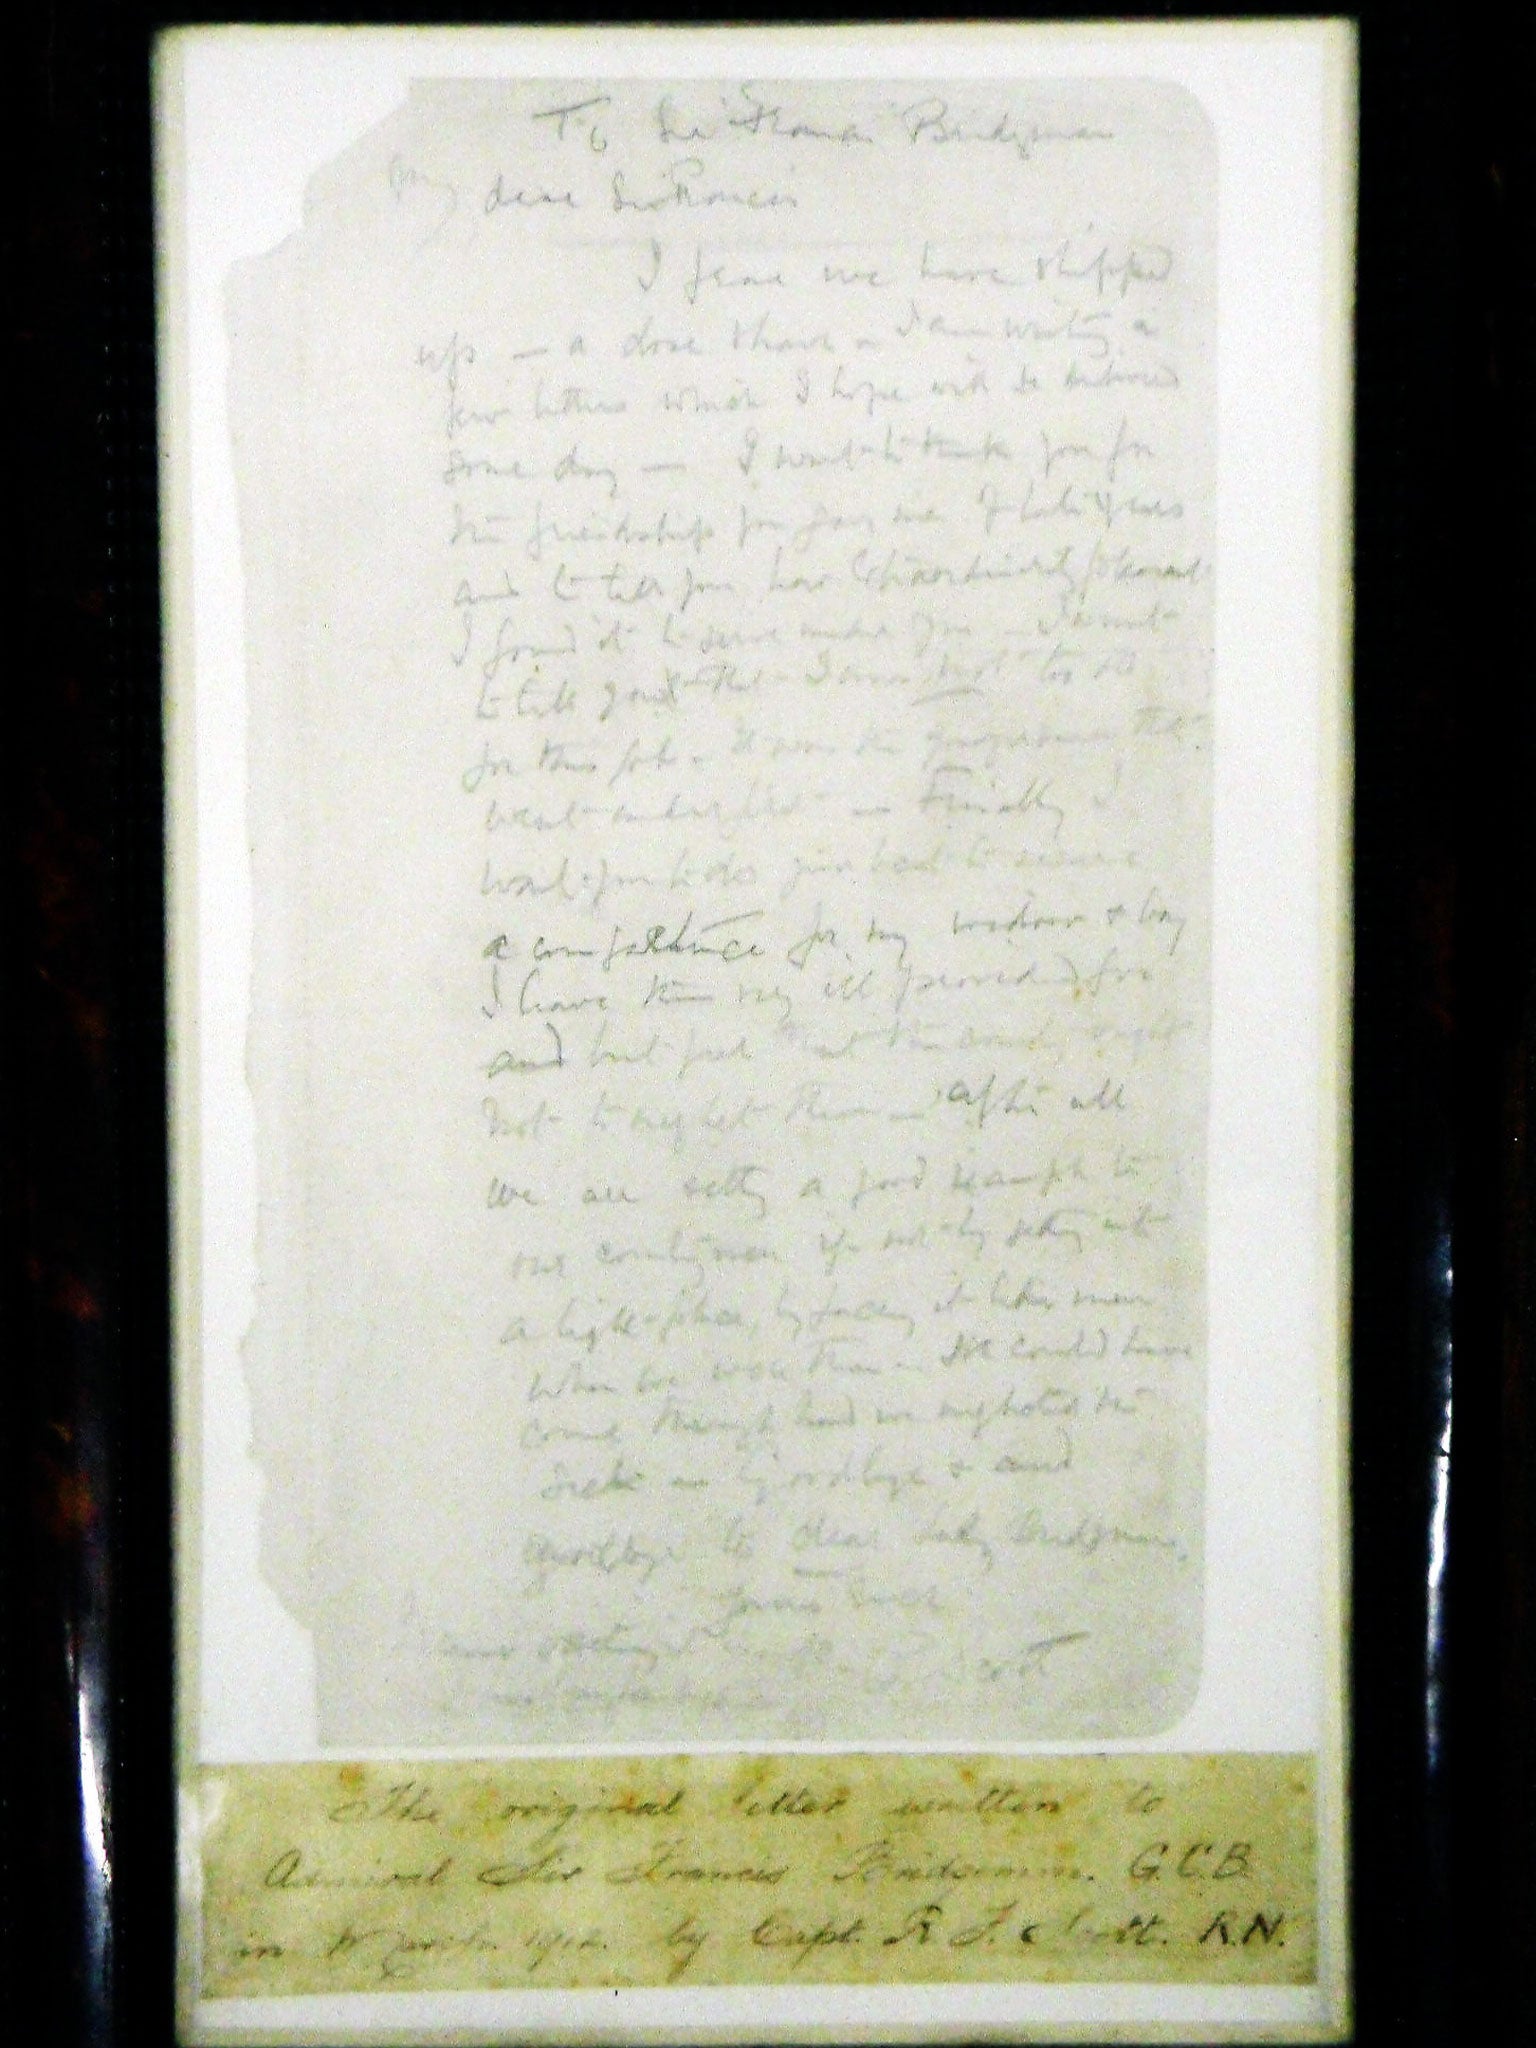 To Sir Francis Bridgeman
My dear Sir Francis
I fear we have shipped
up – a close shave – I am writing a
few letters which I hope will be delivered
some day – I want to thank you for
the friendship you gave me of late years
and to tell you how extraordinarily pleasant
I found it to serve under you – I want
to tell you that I was not too old
for this job – It was the younger men that
went under first – Finally I
want you to do your best to secure
a competence for my widow & boy
I leave them very ill provided for
and but feel that the country ought
not to neglect them – After all
we are setting a good example to
our countrymen if not by getting into
a tight place, by facing it like men
when we were there – We could have
come through had we neglected the
sick – Goodbye & and
Goodbye to dear Lady Bridgeman
Yours ever
R. Scott
The original letter written to
Admiral Sir Francis Bridgeman. G.C.B.
in March. 1912. by Capt. R. F. Scott. R.N.